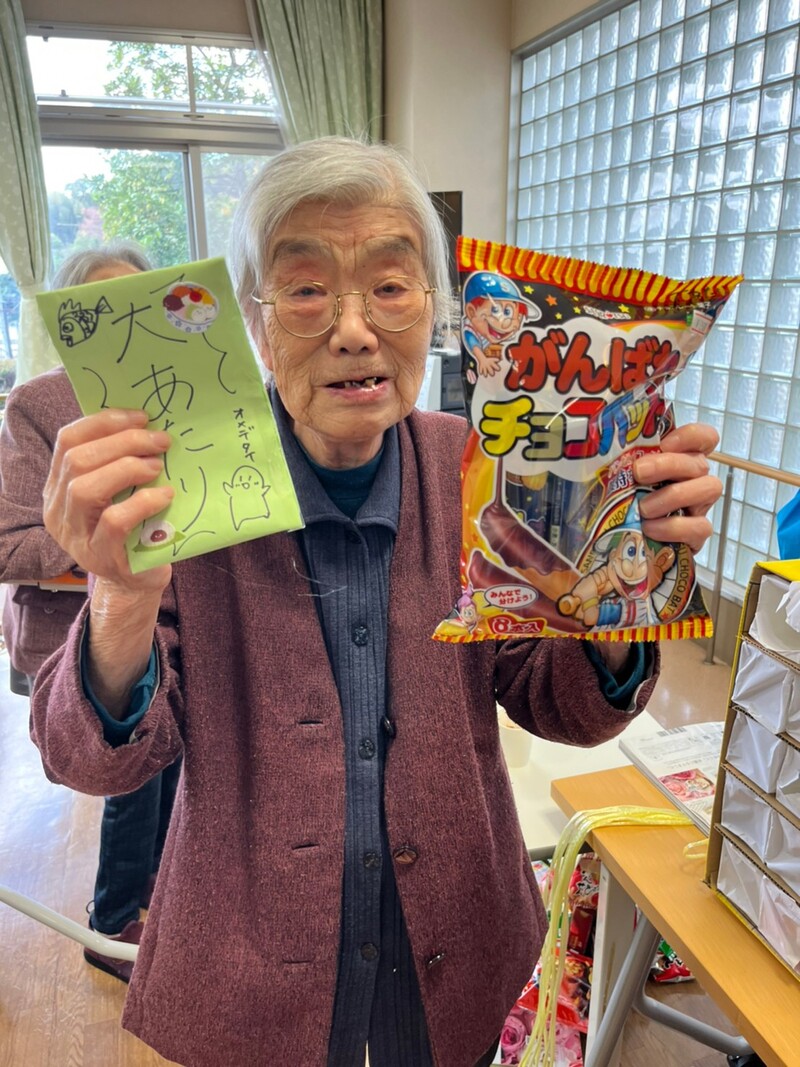 大
あたり
オメデタイ
がんばれ
チョコバット
みんなで
分けよう!
8本入
CHOCO BAT